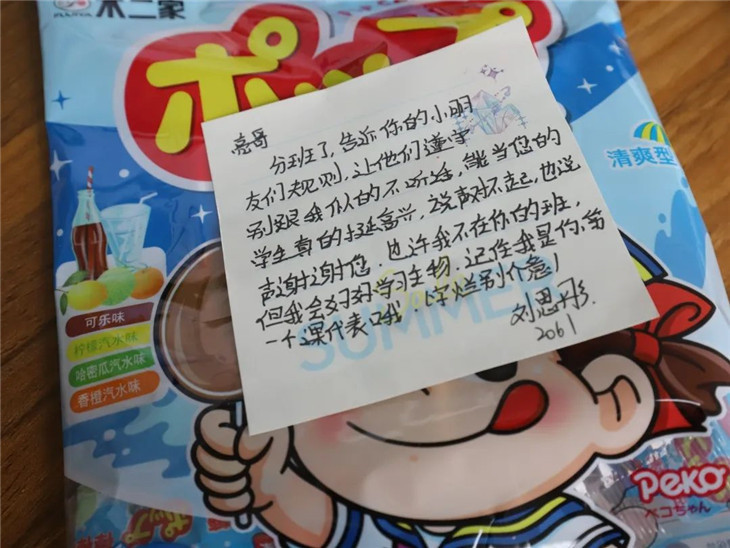 不二家
ポップ
清爽型
亮哥
分班了,告诉你的小朋
友们规则,让他们遵守
别跟我似的不听话,能当您的
学生真的挺高兴,说声对不起,也说
声谢谢您.也许我不在你的班,
但我会好好学习生物,记住我是你第
一个课代表哦.字烂别介意!
刘思彤.
2061
SUMMER
可乐味
柠檬汽水味
哈密瓜汽水味
香橙汽水味
Peko
ペコちゃん